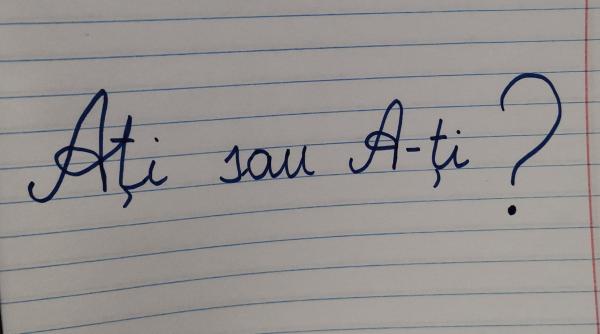 Ați sau A-ți?